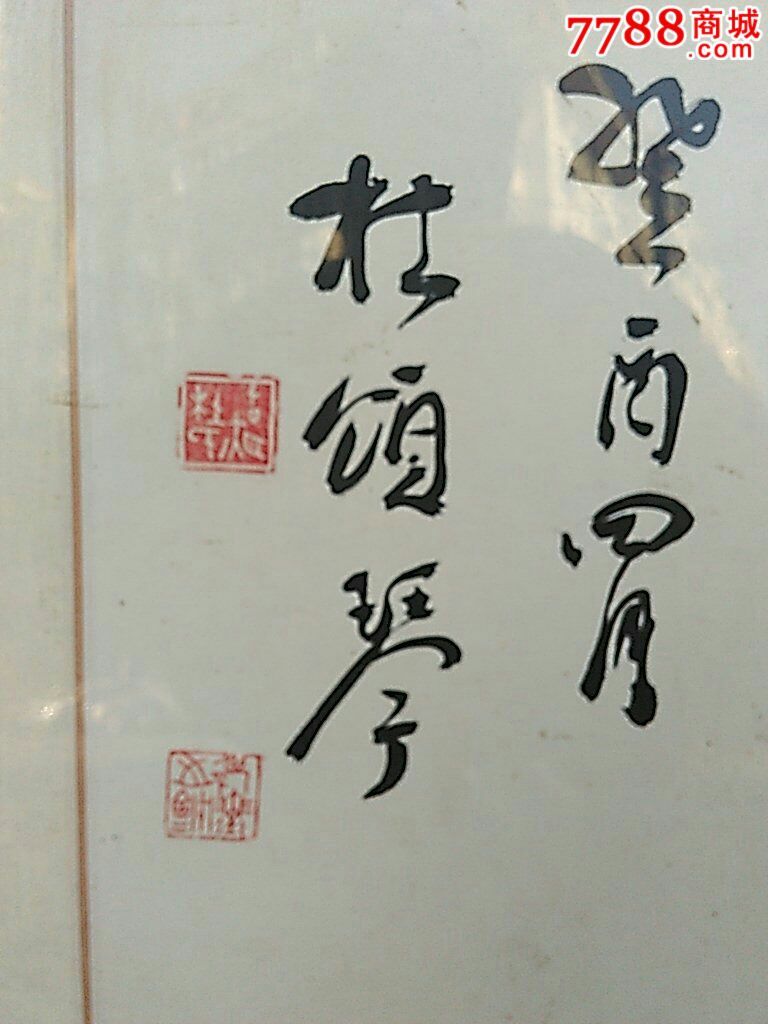 7788商城
.com
癸酉四月
杜頌琴